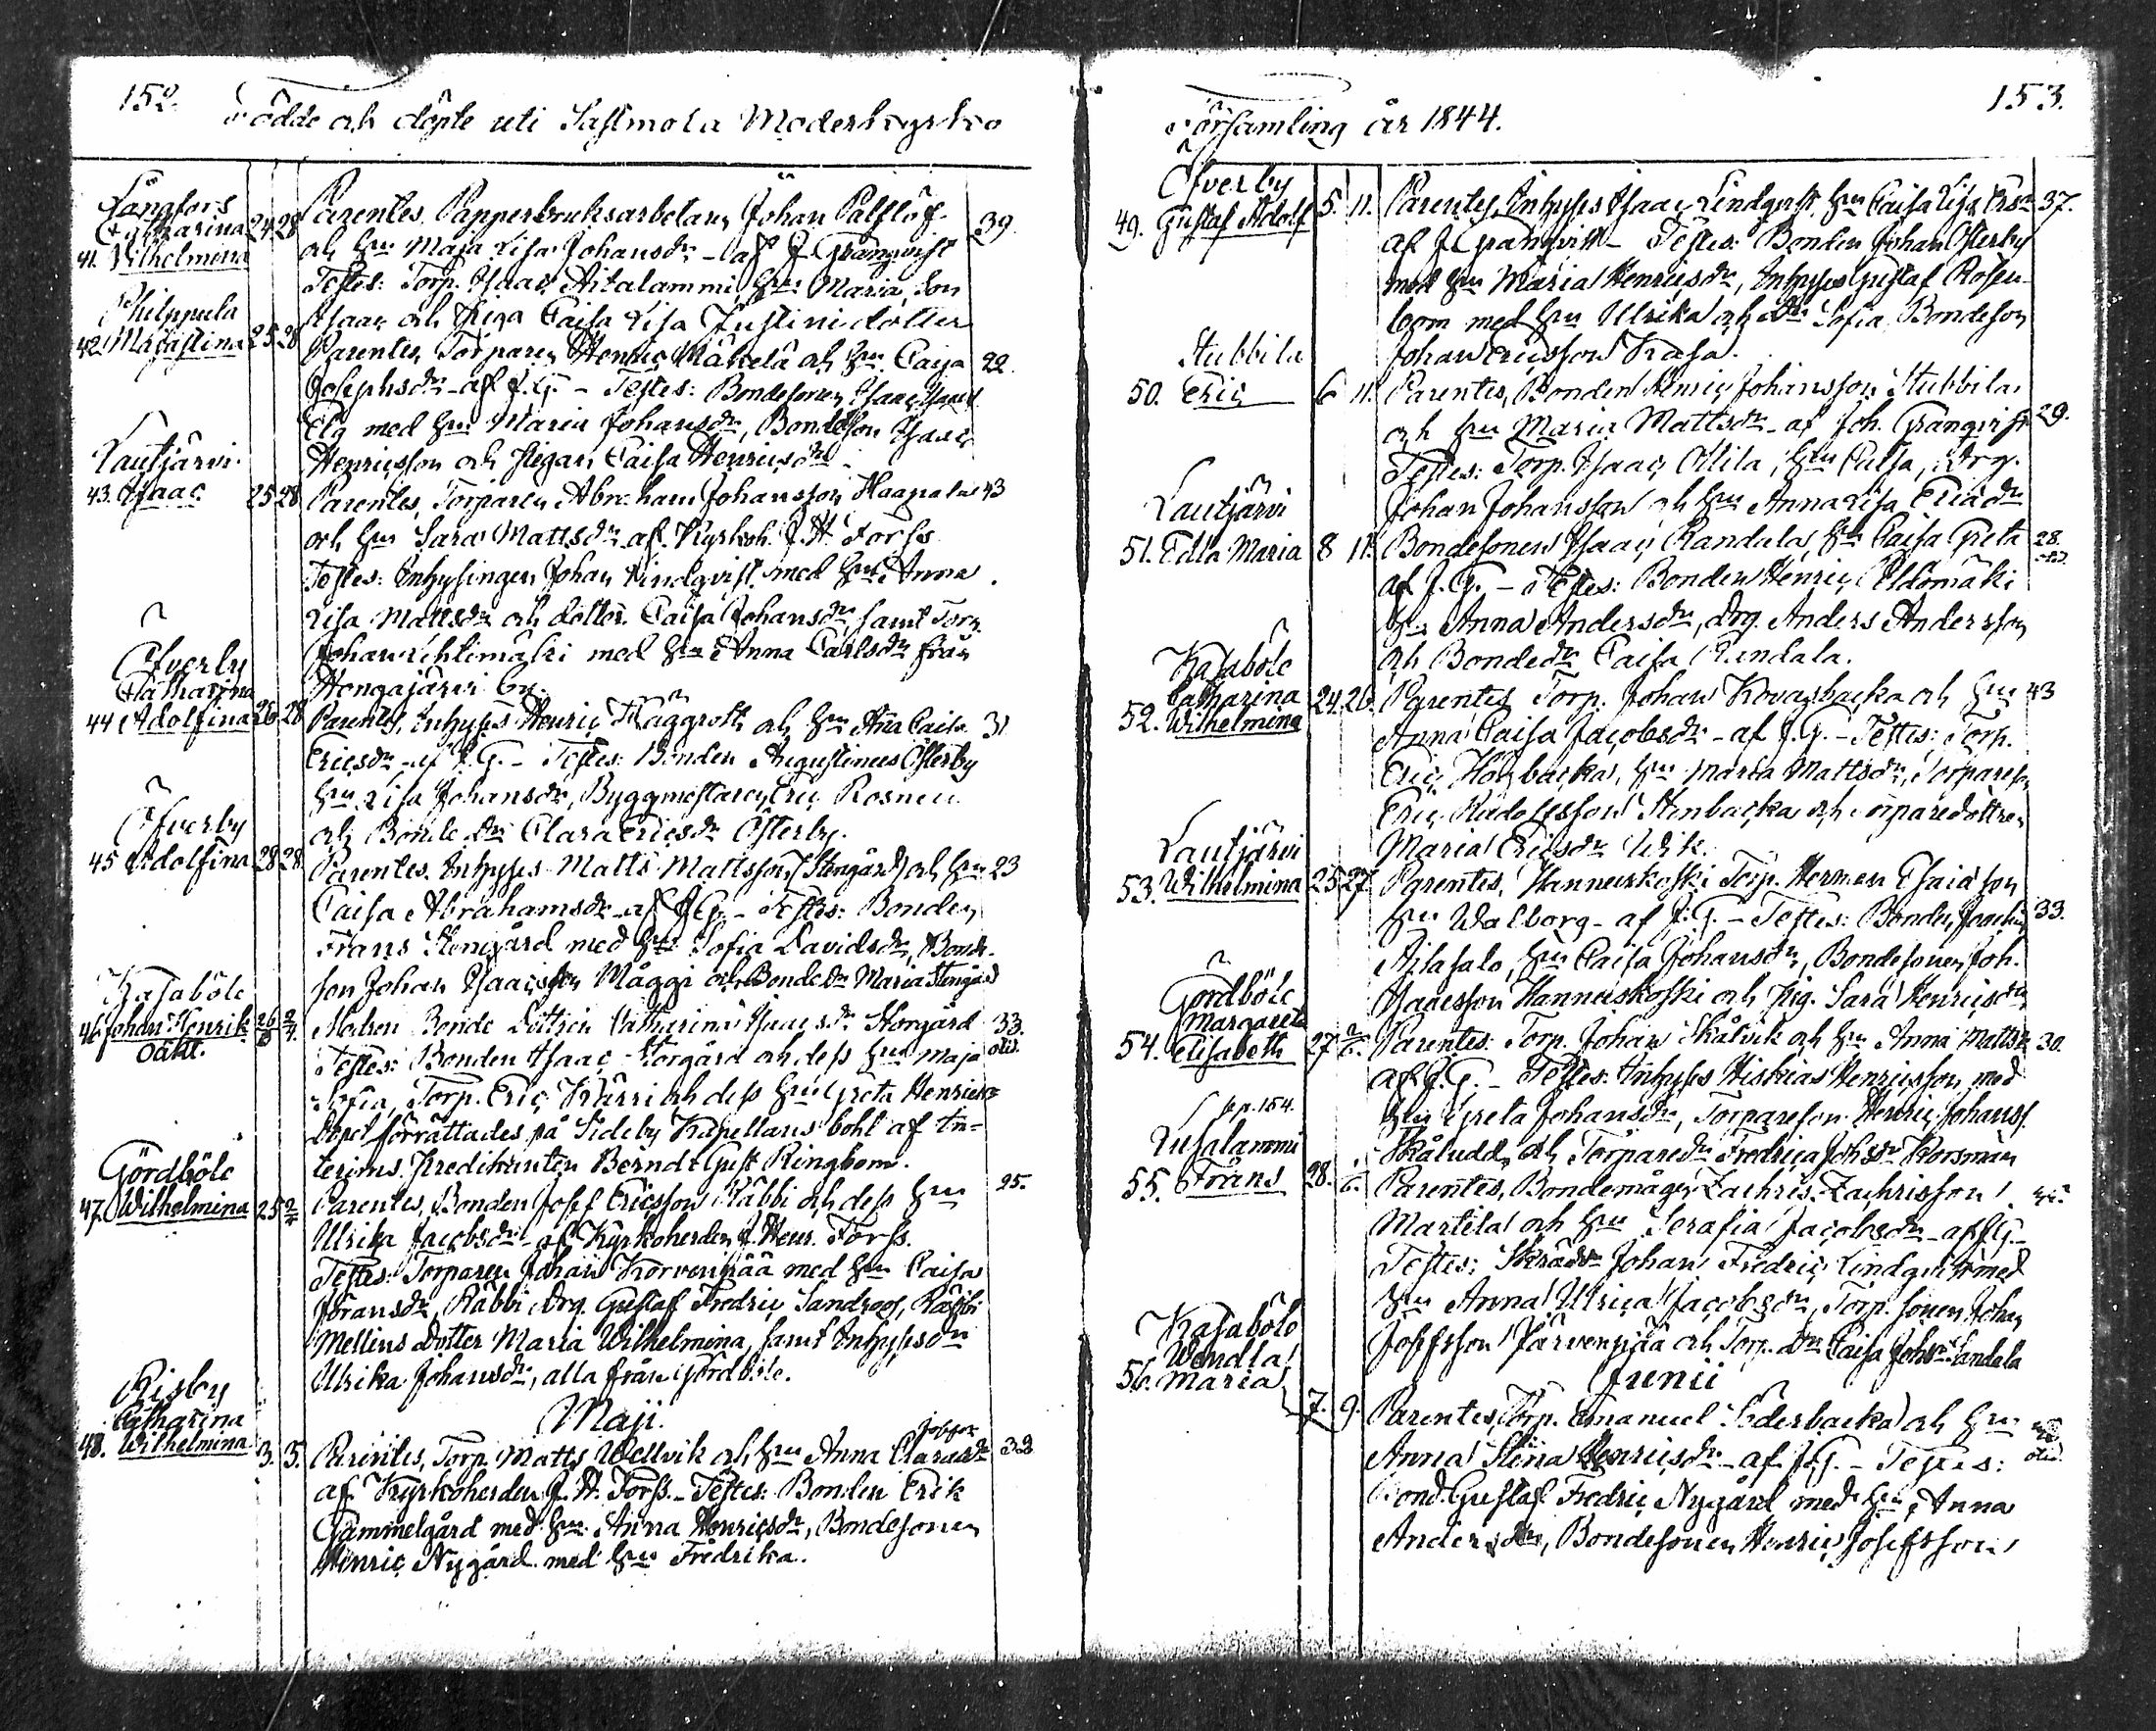 152.
Födde och döpte uti Sastmola Moderkyrko
Långfors
Catharina
41. Wilhelmina 24 28
Parentes, Papperbruksarbetaren Johan Palflöf 39.
och Hu Maja Lisa Johansdr - af J. Granqvist
Testes: Torp. Isaac Aitalammi, Hu Maria, Son
Isaac och Pigan Caisa Lisa Justini dotter
Philppula
42. Maja Stina 25 28
Parentes, Torparen Henric Mäkelä och Hu Caisa 22.
Josephsdr - af J.G. - Testes: Bondesonen Isaac
Elg med Hu Maria Johansdr, Bondeson Isaac
Henricsson och Pigan Caisa Henricsdr
Lautjärvi
43. Isaac 25 28
Parentes, Torparen Abraham Johansson Haapala 43
och Hu Sara Mattsdr af Kyrkoh. J.H. Forss
Testes: Inhysingen Johan Lindqvist med Hu Anna
Lisa Mattsdr och dotter Caisa Johansdr samt Torp.
Johan Lehtimäki med Hu Anna Carlsdr från
Hongajärvi by.
Öfverby
Catharina
44 Adolfina 26 28
Parentes, Inhyses Henric Häggroth och Hu Anna Caisa 31
Ericsdr - af J.G. - Testes: Bonden Augustinus Österby
Hu Lisa Johansdr, Byggmestaren Eric Rosnell
och Bonde dr Clara Ericsdr Österby.
Öfverby
45 Adolfina 28 28
Parentes. Inhyses Matts Mattsson Stengård och Hu 23
Caisa Abrahamsdr - af J.G. - Testes: Bonden
Frans Stengård med Hu Sofia Davidsdr, Bonde-
son Johan Isaacsson Mäggi och Bondedr Maria Stengård
Kasaböle
46. Johan Henrik 26/3 2/4
oäkt.
Modren Bonde Dottren Catharina Isaacsdr Storgård 33.
Testes: Bonden Isaac Storgård och dess Hu Maja
Sofia, Torp. Eric Kärri och dess Hu Greta Henricsdr
Dopet förrättades på Sideby Kapellans bohl af In-
terims Predikanten Berndt Gust Ringbom.
Gördböle
47. Wilhelmina 25 2/4
Parentes, Bonden Josef Ericsson Räbbi och dess Hu 25.
Ulrika Jacobsdr - af Kyrkoherden J. Henr. Forss.
Testes: Torparen Johan Korvenpää med Hu Caisa
Göransdr, Räbbi, Drg. Gustaf Fredric Sandroos, Räbbi
Mellins Dotter Maria Wilhelmina, samt Inhysesdr
Ulrika Johansdr, alla från Gördböle.
Maji.
Risby
Catharina
48. Wilhelmina 3. 5.
Parentes, Torp. Matts Wellvik och Hu Anna Clara
af Kyrkoherden J. H. Forss. - Testes: Bonden Erik
Gammelgård med Hu Anna Henricsdr, Bondesonen
Henric Nygård med Hu Fredrika.
153.
Församling år 1844.
Öfverby
49. Gustaf Adolf 5. 11.
Parentes, Inhyses Isaac Lindqvist, Hu Caisa Lisa 37.
af J. Granqvist - Testes: Bonden Johan Österby
med Hu Maria Henricsdr, Inhyses Gustaf Rosen-
bom med Hu Ulrika och dr Sofia, Bondeson
Johan Ericsson Kasa.
Stubbila
50. Eric 6 11.
Parentes, Bonden Henric Johansson Stubbila
och Hu Maria Mattsdr - af Joh. Granqvist 29.
Testes: Torp. Isaac Ollila, Hu Caisa, Drg.
Johan Johansson och Hu Anna Lisa Ericsdr
Lautjärvi
51. Edla Maria 8 11.
Bondesonen Isaac Randala, Hu Caisa Greta 28.
af J.G. - Testes: Bonden Henric Peldomäki
Hu Anna Andersdr, Drg. Anders Andersson
och Bondedr Caisa Randala.
Kasaböle
Catharina
52. Wilhelmina 24. 26.
Parentes Torp. Johan Kovasbacka och Hu 43
Anna Caisa Jacobsdr - af J.G. - Testes: Torp.
Eric Högbacka, Hu Maria Mattsdr, Torpareson
Eric Rudolfsson Stenbacka och Torparedottren
Maria Ericsdr Wik.
Lautjärvi
53. Wilhelmina 25 27
Parentes, Hanneuskoski Torp. Herman Esaiasson
Hu Walborg - af J.G. - Testes: Bonden Joachim 33.
Aitasalo, Hu Caisa Johansdr, Bondesonen Joh.
Isaacsson Hanneuskoski och Pig. Sara Henricsdr
Gördböle
Margareta
54. Elisabeth 27
Parentes: Torp. Johan Skålvik och Hu Anna Mattsdr 30.
af J.G. - Testes: Inhyses Hiskias Henricsson med
Hu Greta Johansdr, Torpareson Henric Johanss.
Skåludd, och Torparedr Fredrica Johsdr Korsman
se p. 154.
Lusalammi
55. Frans 28.
Parentes, Bondemågen Zachris Zachrisson
Martila och Hu Serafia Jacobsdr - af J.G. -
Testes: Skräddr Johan Fredric Lindqvist med
Hu Anna Ulrica Jacobsdr, Torp. sonen Johan
Josefsson Järvenpää och Torp. dr Caisa Johsdr Sandala
Junii
Kasaböle
Wendla
56. Maria 7. 9.
Parentes, Torp. Emanuel Söderbacka och Hu
Anna Stina Henricsdr - af J.G. - Testes:
Bond. Gustaf Fredric Nygård med Hu Anna
Andersdr, Bondesonen Henric Josefsson